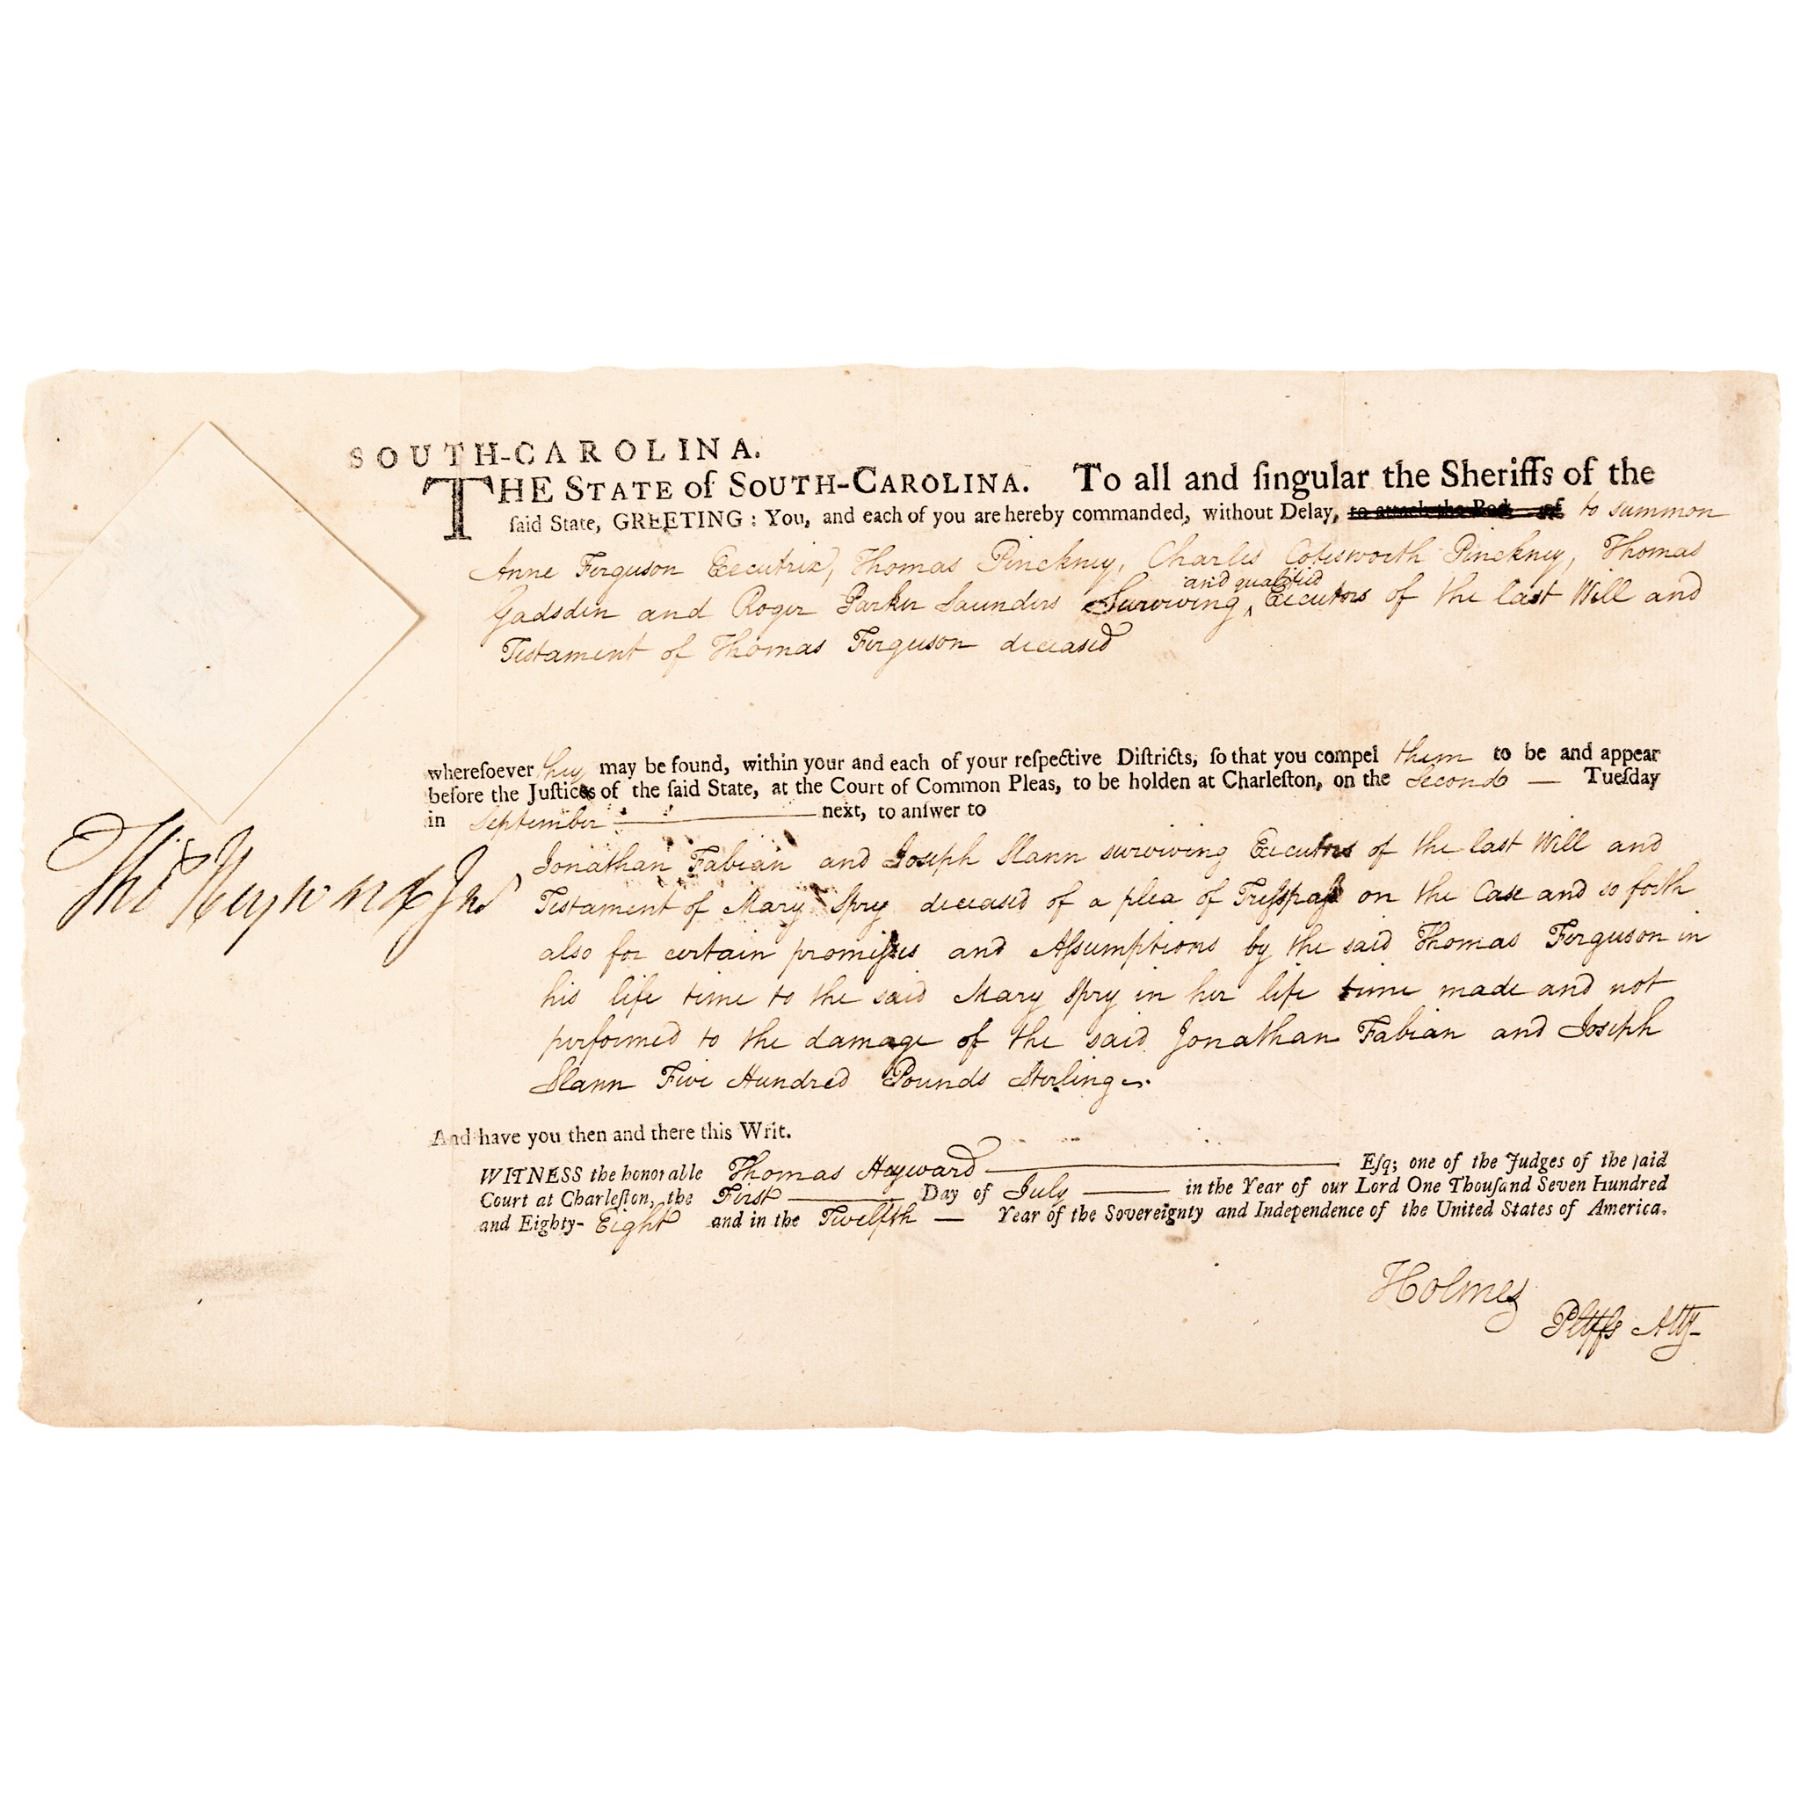 SOUTH-CAROLINA.
THE STATE of SOUTH-CAROLINA. To all and ſingular the Sheriffs of the
ſaid State, GREETING: You, and each of you are hereby commanded, without Delay, to attach the Body of to summon
Anne Ferguson Executrix, Thomas Pinckney, Charles Cotesworth Pinckney, Thomas
and qualified
Gadsden and Roger Parker Saunders Surviving ‸ Executors of the last Will and
Testament of Thomas Ferguson deceased
whereſoever they may be found, within your and each of your reſpective Diſtricts, ſo that you compel them to be and appear
before the Juſtices of the ſaid State, at the Court of Common Pleas, to be holden at Charleſton, on the Second — Tueſday
in September — next, to anſwer to
Jonathan Fabian and Joseph Slann surviving Executors of the last Will and
Testament of Mary Spry deceased of a plea of Treſspaſs on the Case and so forth
also for certain promiſses and Aſsumptions by the said Thomas Ferguson in
his life time to the said Mary Spry in her life time made and not
performed to the damage of the said Jonathan Fabian and Joseph
Slann Five Hundred Pounds Sterling.
Tho Heyward Jnr
And have you then and there this Writ.
WITNESS the honorable Thomas Heyward — Eſq; one of the Judges of the ſaid
Court at Charleſton, the First — Day of July — in the Year of our Lord One Thouſand Seven Hundred
and Eighty- Eight and in the Twelfth — Year of the Sovereignty and Independence of the United States of America.
Holmes
Pltffs Atty